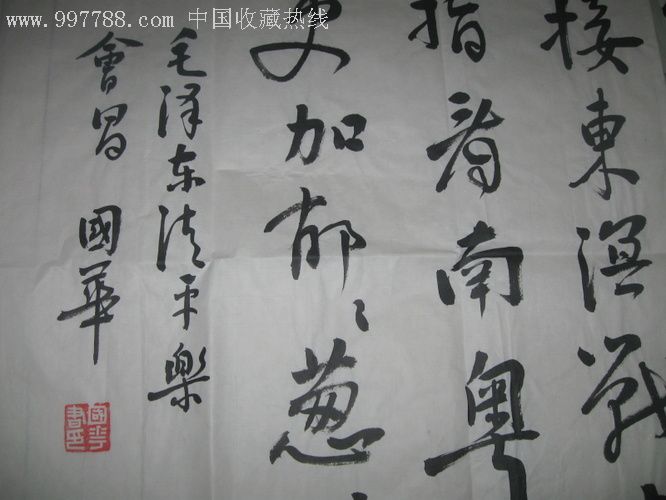 www.997788.com 中国收藏热线
接東溟戰
指看南粤
更加郁〻葱
毛泽东清平樂
會昌 國華
國華書印